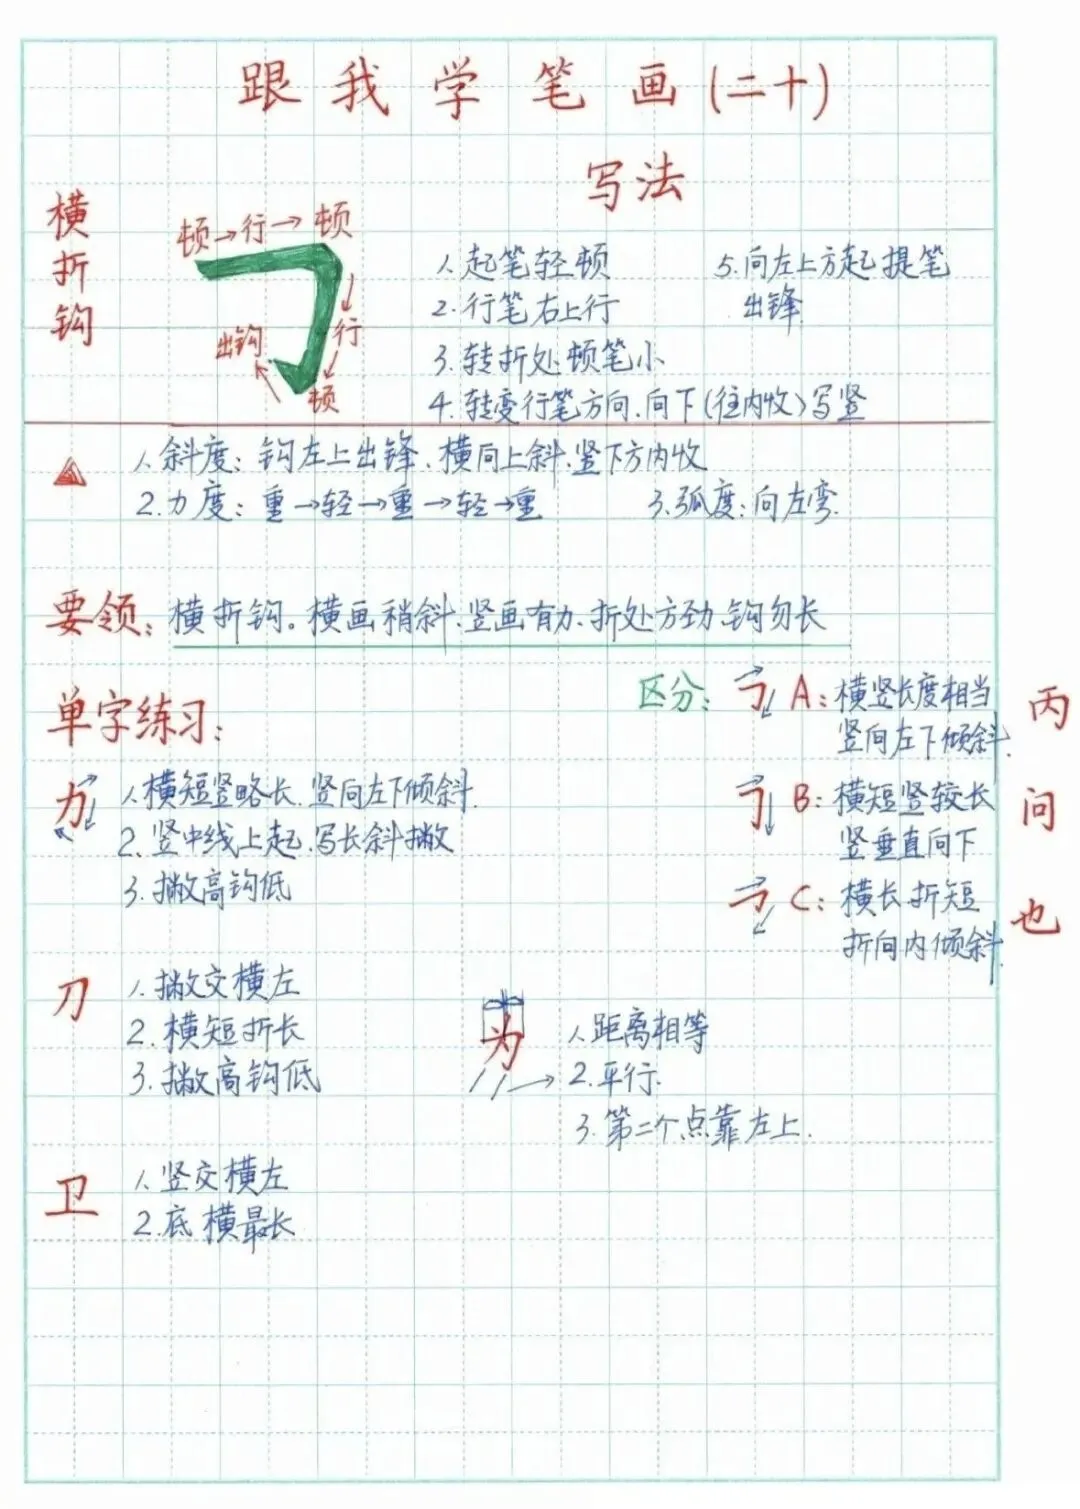 跟我学笔画(二十)
写法
横折钩
顿→行→顿
行
顿
出钩
1.起笔轻顿
2.行笔右上行
3.转折处顿笔小
4.转变行笔方向.向下(往内收)写竖
5.向左上方起提笔
出锋
1.斜度:钩左上出锋.横向上斜.竖下方内收
2.力度:重→轻→重→轻→重
3.弧度:向左弯.
要领:横折钩。横画稍斜.竖画有力.折处方劲.钩勿长
单字练习:
力
1.横短竖略长.竖向左下倾斜.
2.竖中线上起.写长斜撇
3.撇高钩低
刀
1.撇交横左
2.横短折长
3.撇高钩低
卫
1.竖交横左
2.底横最长
区分:
A:横竖长度相当
竖向左下倾斜.
丙
B:横短竖较长
竖垂直向下
问
C:横长折短
折向内倾斜.
也
为
1.距离相等
2.平行.
3.第二个点靠左上.